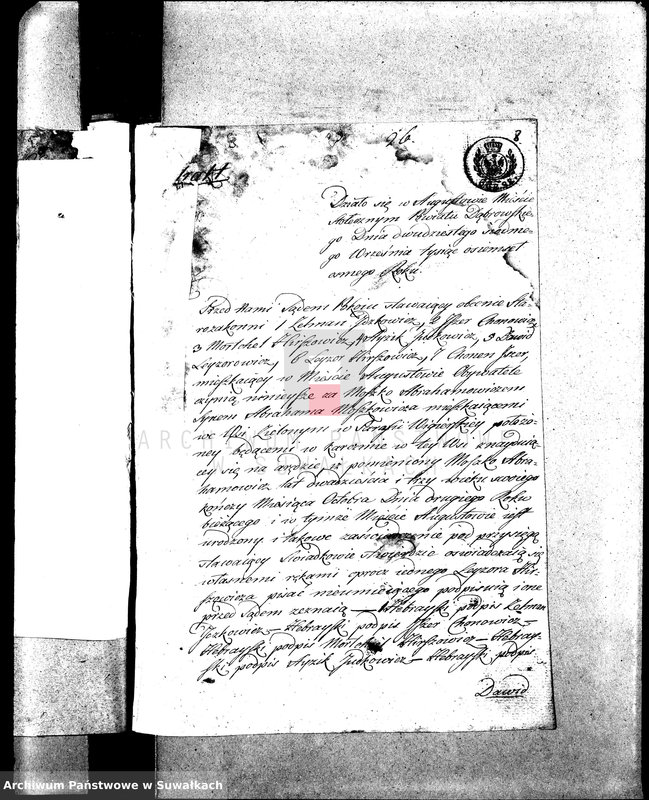 26.
8
Extrakt
Działo się w Augustowie Mieście
Stołecznym Powiatu Dąbrowskie-
go Dnia dwudziestego siódme-
go Września tysiąc osiemset
osmego Roku.
Przed Nami Sądem Pokoiu stawaiący obecnie Sta-
rozakonni 1 Zelman Jzkowicz, 2 Jzer Chonowicz,
3 Mortchel Hirszowicz, 4 Ayzik Judkowicz, 5 Dawid
Leyzorowicz, 6 Leyzor Hirszowicz, 7 Chonen Jzer,
mieszkaiący w Mieście Augustowie Obywatele
czynią ninieysze za Moszko Abrahamowiczem
Synem Abrahama Moszkowicza mieszkaiącemi
we Wsi Zielonym w Parafii Wigierskiey położo-
ney będącemi w karczmie w tey Wsi znayduią-
cey się na arędzie iż pomieniony Moszko Abra-
hamowicz lat dwadzieścia i trzy wieku swoiego
kończy Miesiąca Octobra Dnia drugiego Roku
bieżącego i w tymże Mieście Augustowie iest
urodzony i takowe zaświadczenie pod przysięgą
stawaiący Swiadkowie stwierdzić oświadczaią się
własnemi rękami oprócz iednego Leyzora Hir-
szowicza pisać nieumieiącego podpisuią i one
przed Sądem zeznaią — Hebrayski podpis Zelman
Jzkowicz — Hebrayski podpis Jzer Chonowicz —
Hebrayski podpis Mortchel Hirszowicz — Hebray-
ski podpis Ayzik Judkowicz — Hebrayski podpis
Dawid
ARCHIWUM PAŃSTWOWE
W SUWAŁKACH
Archiwum Państwowe w Suwałkach